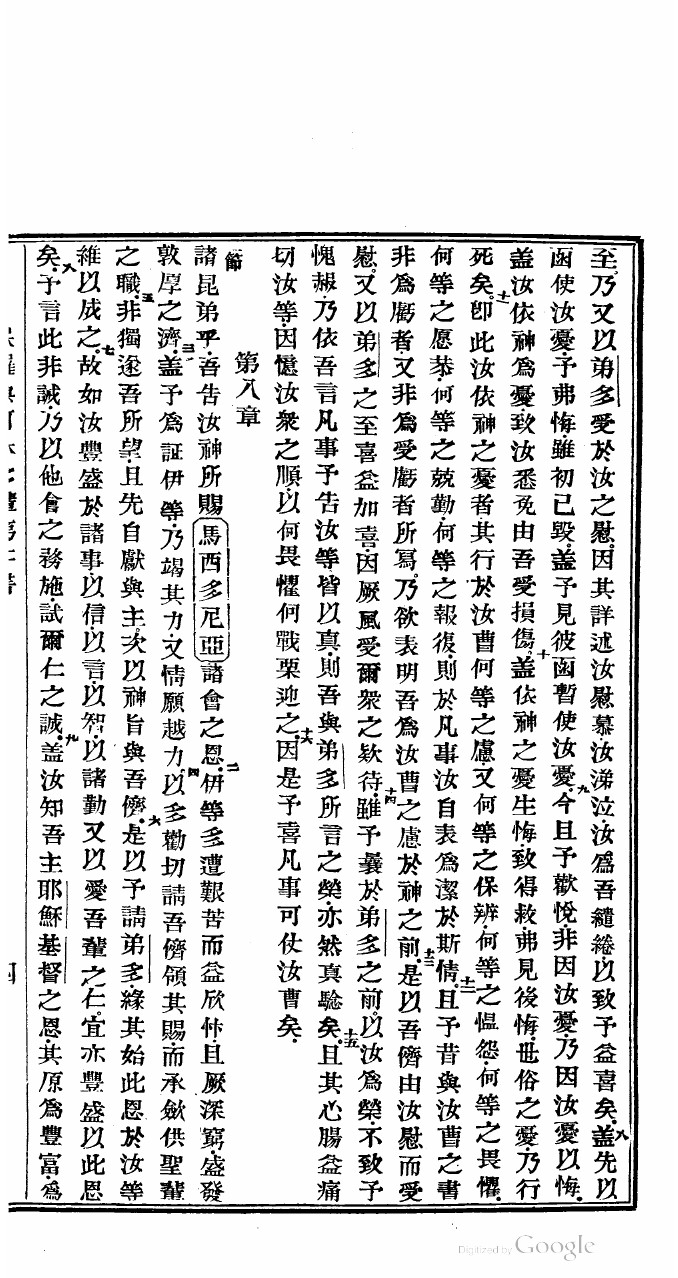 至乃又以弟多愛於汝之慰因其詳述汝慰慕汝涕泣汝爲吾繾綣以致予益喜矣八蓋先以
函使汝憂予弗悔雖初已毀蓋予見彼函暫使汝憂九今且予歡悅非因汝憂乃因汝憂以悔
盖汝依神爲憂致汝悉免由吾受損傷十盖依神之憂生悔致得救弗見後悔世俗之憂乃行
死矣十一卽此汝依神之憂者其行於汝曹何等之慮又何等之保辨何等之愠怨何等之畏懼
何等之愿恭何等之兢勤何等之報復則於凡事汝自表爲潔於斯情十二且予昔與汝曹之書
非爲虧者又非爲受虧者所寫乃欲表明吾爲汝曹之慮於神之前十三是以吾儕由汝慰而受
慰又以弟多之至喜益加喜因厥風受爾衆之欵待十四雖予曩於弟多之前以汝爲榮不致予
愧赧乃依吾言凡事予告汝等皆以真則吾與弟多所言之榮亦然真騐矣十五且其心腸益痛
切汝等因憶汝衆之順以何畏懼何戰栗迎之十六因是予喜凡事可仗汝曹矣
第八章
節諸昆弟乎吾告汝神所賜馬西多尼亞諸會之恩二伊等多遭艱苦而益欣忭且厥深窮盛發
敦厚之濟三蓋予爲証伊等乃竭其力又情願越力四以多勸切請吾儕領其賜而承斂供聖輩
之職五非獨遂吾所望且先自獻與主次以神旨與吾儕六是以予請弟多緣其始此恩於汝等
維以成之七故如汝豐盛於諸事以信以言以智以諸勤又以愛吾輩之仁宜亦豐盛以此恩
矣八予言此非誡乃以他會之務施試爾仁之誠九盖汝知吾主耶穌基督之恩其原爲豐富爲
四
Digitized by Google